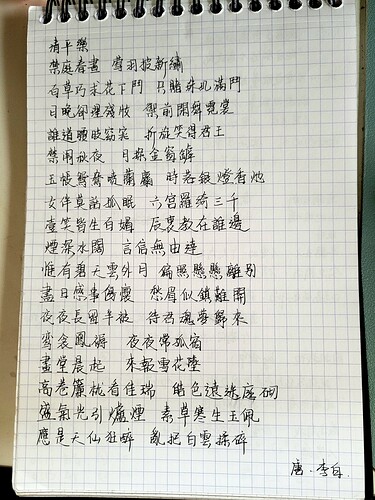 清平樂
禁庭春晝 鶯羽披新繡
百草巧求花下鬥 只賭珠璣滿鬥
日晚卻理殘妝 禦前閒舞霓裳
誰道腰肢窈窕 折旋笑得君王
禁闈秋夜 月探金窗罅
玉帳鴛鴦噴蘭麝 時落銀燈香灺
女伴莫話孤眠 六宮羅綺三千
壹笑皆生百媚 宸衷教在誰邊
煙深水闊 音信無由達
惟有碧天雲外月 偏照懸懸離別
盡日感事傷懷 愁眉似鎖難開
夜夜長留半被 待君魂夢歸來
鸞衾鳳褥 夜夜常孤宿
畫堂晨起 來報雪花墜
高卷簾櫳看佳瑞 皓色遠迷庭砌
盛氣光引爐煙 素草寒生玉佩
應是天仙狂醉 亂把白雲揉碎
唐·李白